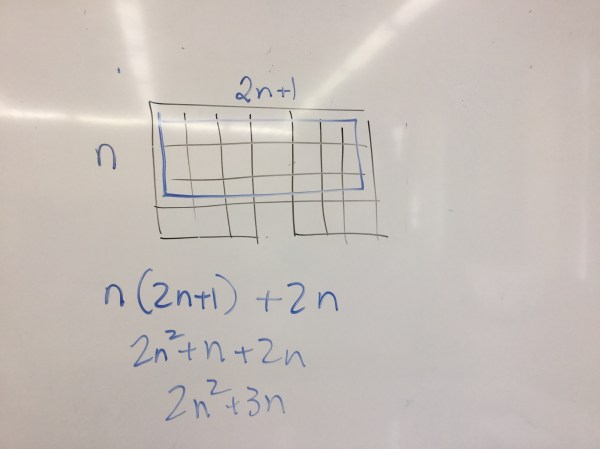 2n+1
n
n(2n+1) +2n
2n²+n+2n
2n²+3n